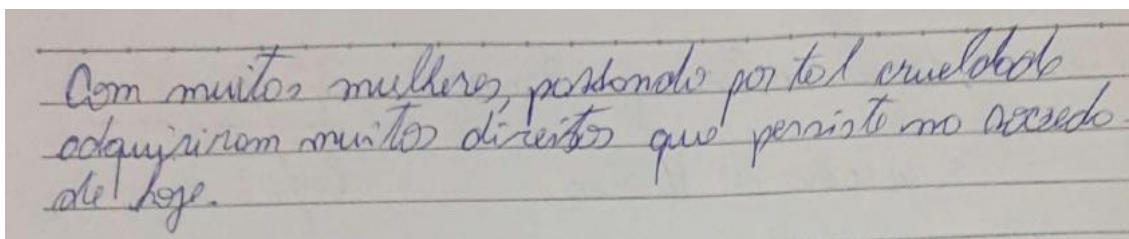 Com muitas mulheres, passando por tal crueldade
adquiriram muitos direitos que persiste no
de hoje.